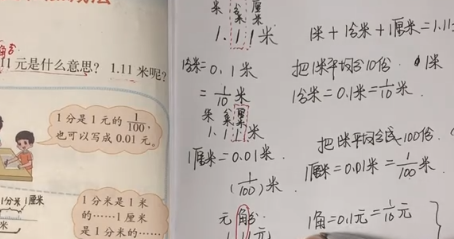 11元是什么意思？1.11米呢？
1分是1元的1/100，
也可以写成0.01元。
1分米是1米
的……1厘米
是1分米的……
1分米 1厘米
米
米 分米 厘米
1.11米
1分米=0.1米
=1/10米
米 分米 厘米
1.11米
1厘米=0.01米
(1/100)米
元 角 分
1.11元
1米+1分米+1厘米=1.11
把1米平均分10份. 1米
1分米=0.1米=1/10米.
把1米平均分成100份.
1厘米=0.01米=1/100米.
1角=0.1元=1/10元